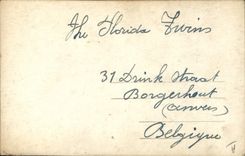 The Florida Twins
31 Drink Straat
Borgerhout
(Anvers)
Belgique